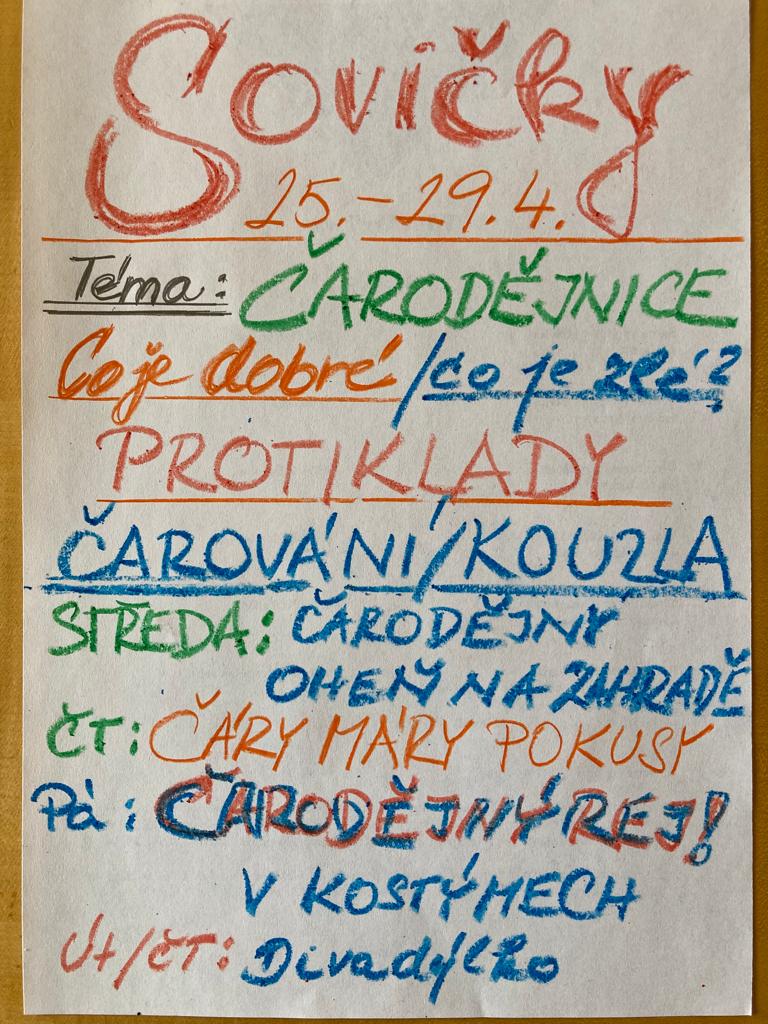 Sovičky
25.-29.4.
Téma: ČARODĚJNICE
Co je dobré/co je zlé?
PROTIKLADY
ČAROVÁNÍ/KOUZLA
STŘEDA: ČARODĚJNÝ
OHEŇ NA ZAHRADĚ
ČT: ČÁRY MÁRY POKUSY
Pá: ČARODĚJNÝ REJ!
V KOSTÝMECH
Út/čt: Divadýlko